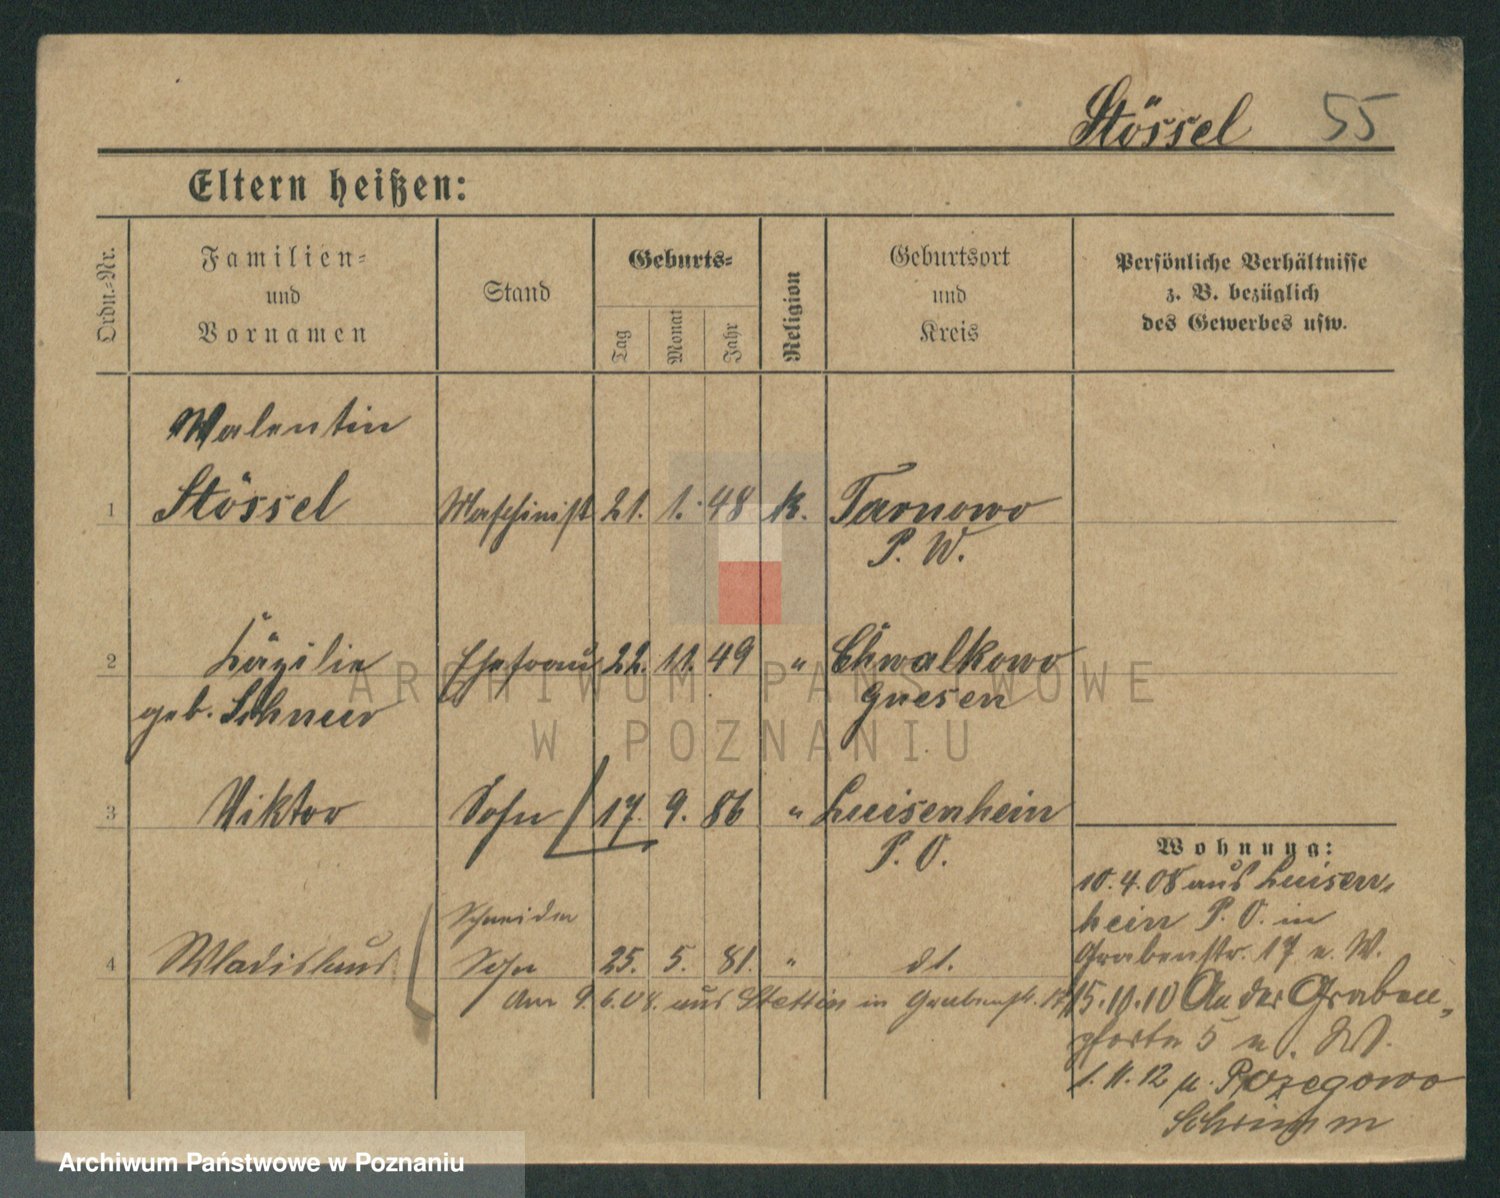 Stössel 55
Eltern heißen:
Ordn.-Nr.
Familien-
und
Vornamen
Stand
Geburts-
Tag
Monat
Jahr
Religion
Geburtsort
und
Kreis
Persönliche Verhältnisse
z. B. bezüglich
des Gewerbes usw.
Walentin
1 Stössel Maschinist 21. 1. 48 k. Tarnowo
P. W.
2 Cäzilie Ehefrau 22. 11. 49 " Chwalkowo
geb. Gnesen
3 Viktor Sohn 17. 9. 86 " Luisenhein
P. O.
Schneider
4 Wladislaus Sohn 25. 5. 81. " dt.
Am 9. 6. 08. aus Stettin in Grabenstr. 17
Wohnung:
10. 4. 08 aus Luisen-
hein P. O. in
Grabenstr. 17 n. W.
15. 10. 10 An der Graben-
pforte 5 n. W.
1. 11. 12 n.
Schrimm
ARCHIWUM PAŃSTWOWE
W POZNANIU
Archiwum Państwowe w Poznaniu